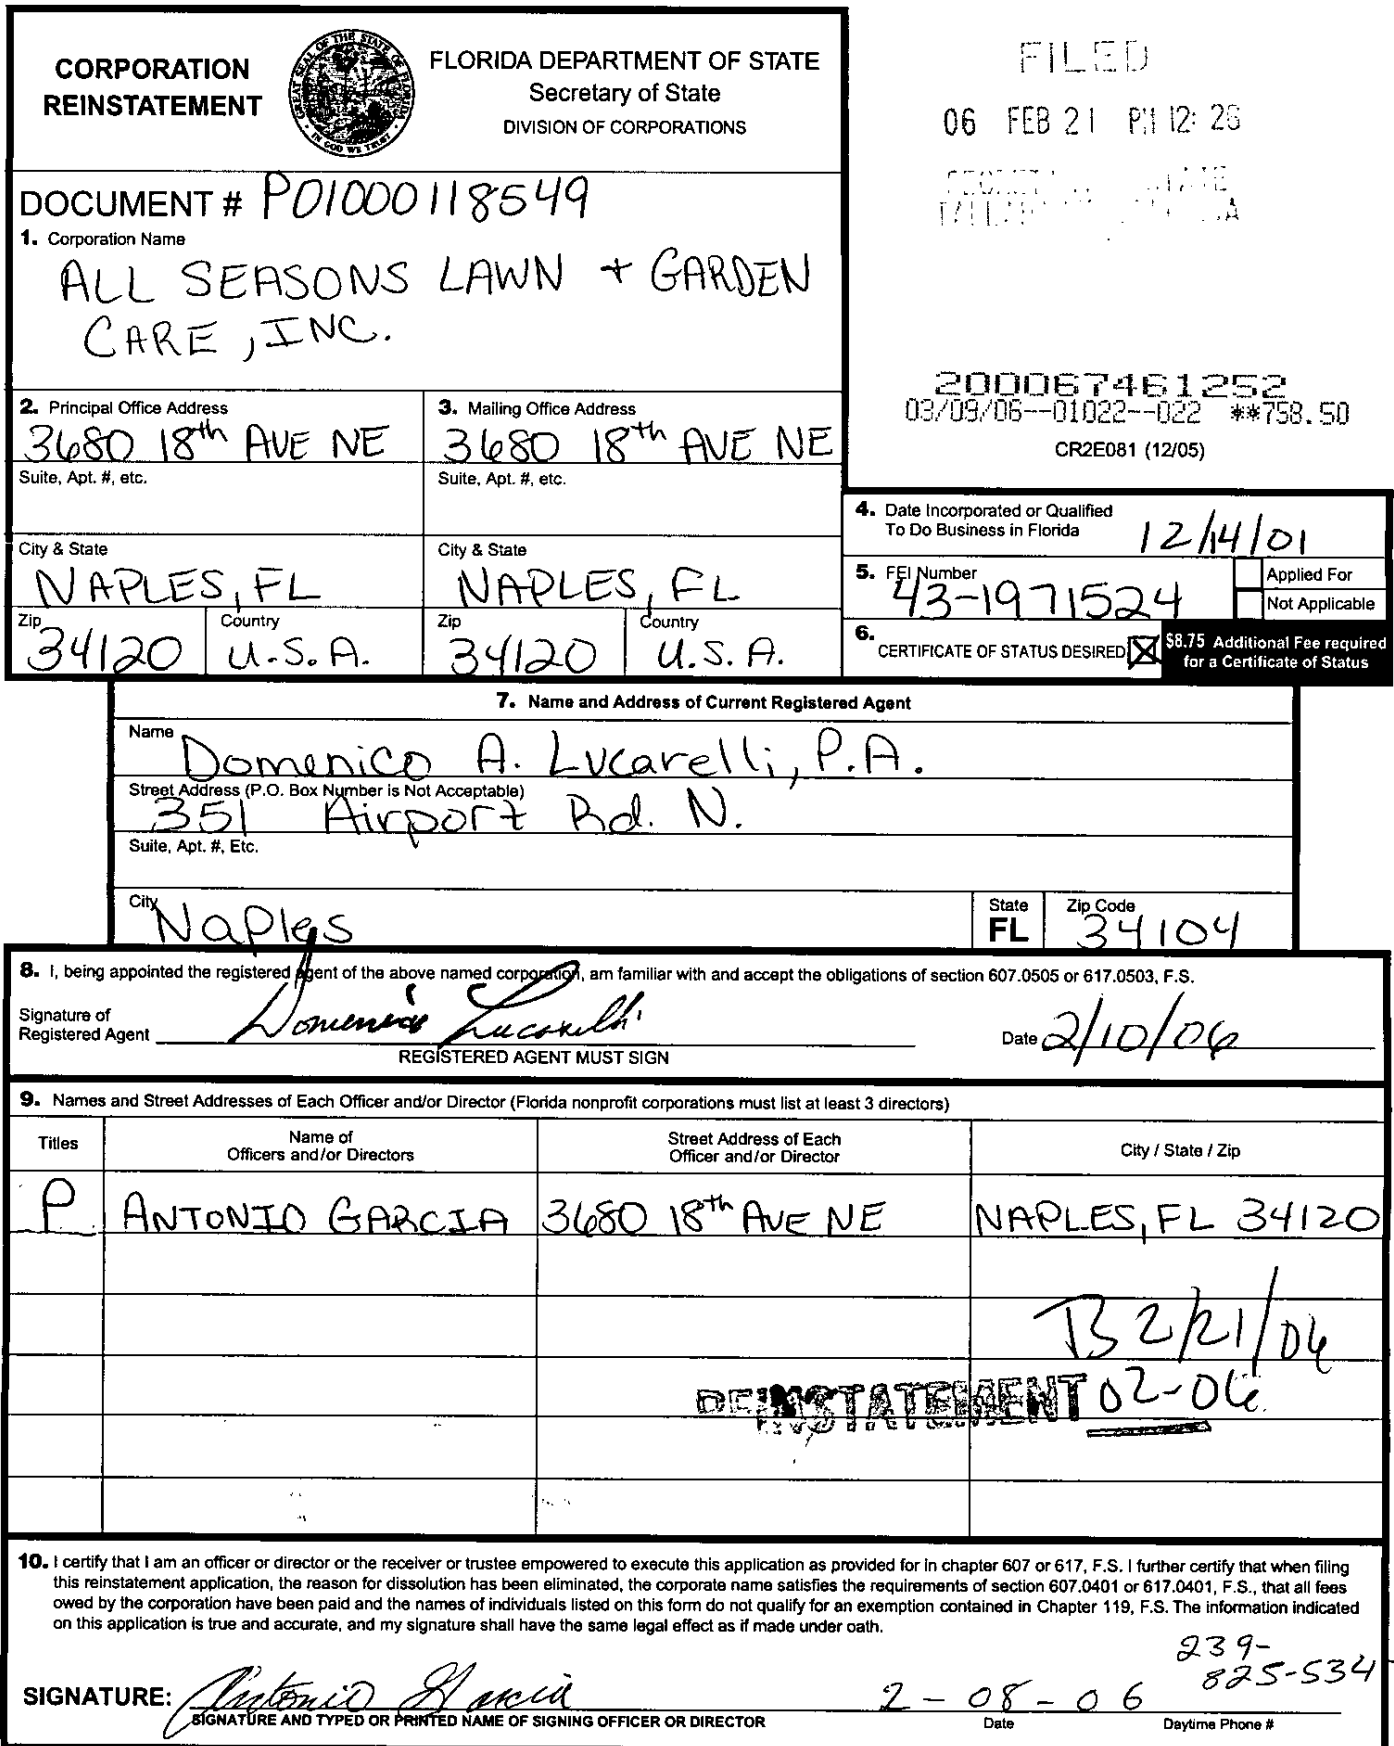 CORPORATION
REINSTATEMENT
GREAT SEAL OF THE STATE OF FLORIDA
IN GOD WE TRUST
FLORIDA DEPARTMENT OF STATE
Secretary of State
DIVISION OF CORPORATIONS
FILED
06 FEB 21 PM 12: 26
DOCUMENT # P01000118549
1. Corporation Name
ALL SEASONS LAWN + GARDEN
CARE, INC.
200067461252
03/09/06--01022--022 **758.50
CR2E081 (12/05)
2. Principal Office Address
3680 18th AVE NE
Suite, Apt. #, etc.
City & State
NAPLES, FL
Zip
34120
Country
U.S.A.
3. Mailing Office Address
3680 18th AVE NE
Suite, Apt. #, etc.
City & State
NAPLES, FL
Zip
34120
Country
U.S.A.
4. Date Incorporated or Qualified
To Do Business in Florida 12/14/01
5. FEI Number
43-1971524
Applied For
Not Applicable
6. CERTIFICATE OF STATUS DESIRED X
$8.75 Additional Fee required
for a Certificate of Status
7. Name and Address of Current Registered Agent
Name
Domenico A. Lucarelli, P.A.
Street Address (P.O. Box Number is Not Acceptable)
351 Airport Rd. N.
Suite, Apt. #, Etc.
City
Naples
State
FL
Zip Code
34104
8. I, being appointed the registered agent of the above named corporation, am familiar with and accept the obligations of section 607.0505 or 617.0503, F.S.
Signature of
Registered Agent Domenico Lucarelli
REGISTERED AGENT MUST SIGN
Date 2/10/06
9. Names and Street Addresses of Each Officer and/or Director (Florida nonprofit corporations must list at least 3 directors)
Titles
Name of
Officers and/or Directors
Street Address of Each
Officer and/or Director
City / State / Zip
P ANTONIO GARCIA 3680 18th AVE NE NAPLES, FL 34120
TB 2/21/06
REINSTATEMENT 02-06
10. I certify that I am an officer or director or the receiver or trustee empowered to execute this application as provided for in chapter 607 or 617, F.S. I further certify that when filing
this reinstatement application, the reason for dissolution has been eliminated, the corporate name satisfies the requirements of section 607.0401 or 617.0401, F.S., that all fees
owed by the corporation have been paid and the names of individuals listed on this form do not qualify for an exemption contained in Chapter 119, F.S. The information indicated
on this application is true and accurate, and my signature shall have the same legal effect as if made under oath.
239-
825-534
SIGNATURE: Antonio Garcia 2-08-06
SIGNATURE AND TYPED OR PRINTED NAME OF SIGNING OFFICER OR DIRECTOR
Date
Daytime Phone #